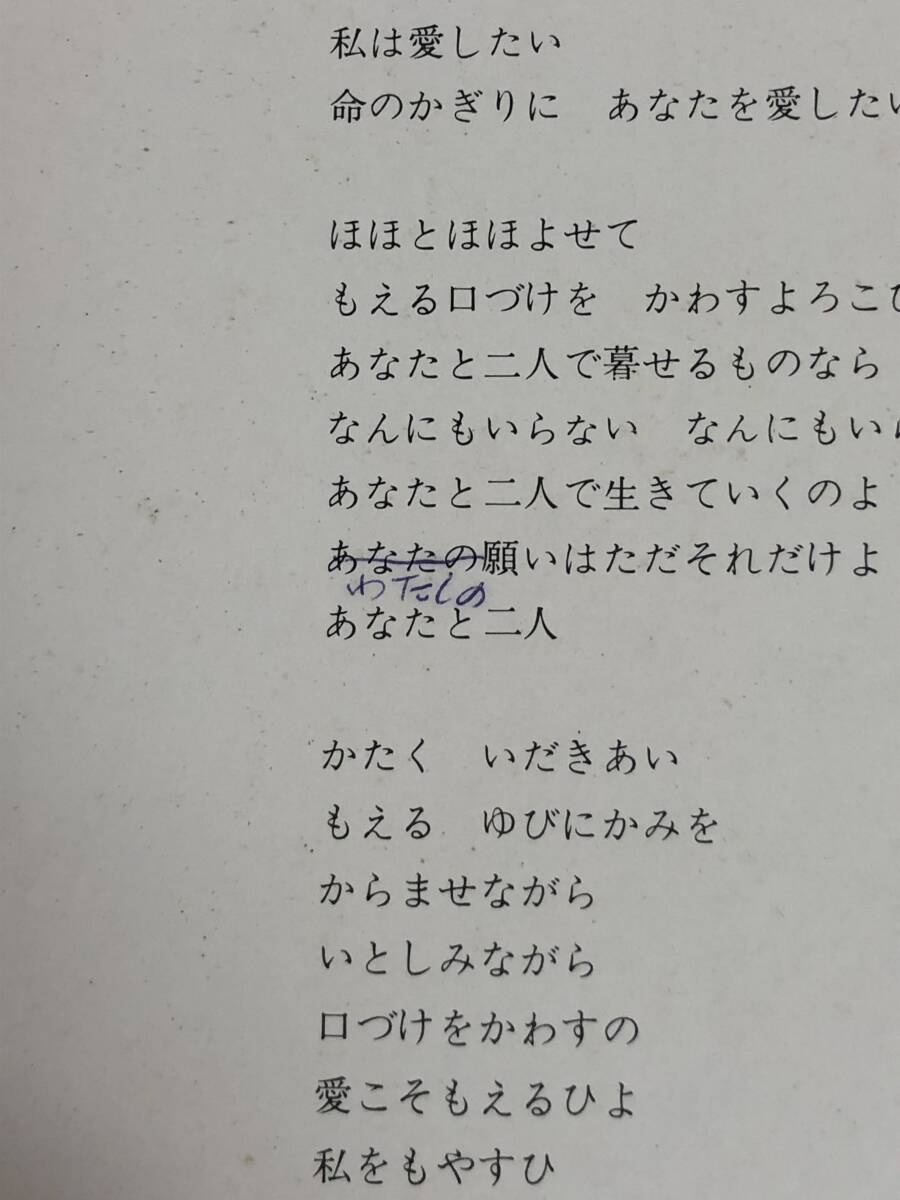 私は愛したい
命のかぎりに　あなたを愛したい
ほほとほほよせて
もえる口づけを　かわすよろこ
あなたと二人で暮せるものなら
なんにもいらない　なんにもい
あなたと二人で生きていくのよ
あなたの願いはただそれだけよ
わたしの
あなたと二人
かたく　いだきあい
もえる　ゆびにかみを
からませながら
いとしみながら
口づけをかわすの
愛こそもえるひよ
私をもやすひ